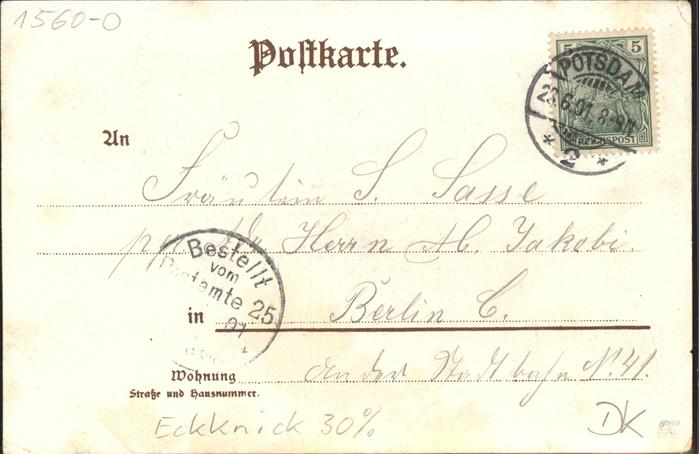 1560-0
Postkarte.
5 5
POTSDAM
23.6.01. 8-9N.
REICHSPOST
* 2 *
An
Fräulein S. Sasse
Herrn M. Jakobi.
Bestellt
vom
Postamte 25
01
in Berlin C.
Wohnung
Straße und Hausnummer.
An der Stadtbahn N. 41.
Eckknick 30%
DK